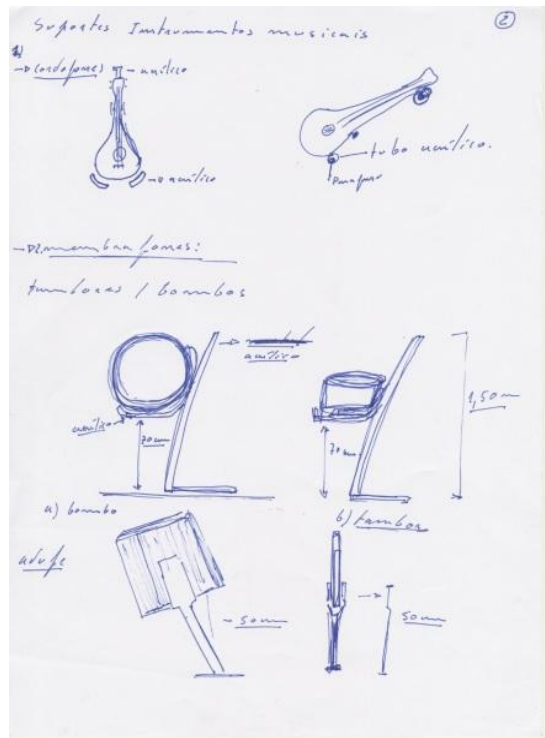 Suportes Instrumentos musicais
2
1)
→ Cordofones
acrílico
acrílico
tubo acrílico.
Parafuso
→ 2. membrafones:
tambores / bombos
acrílico
acrílico
70 cm
70 cm
1,50 m
a) bombo
b) tambor
adufe
~ 50 cm
50 cm